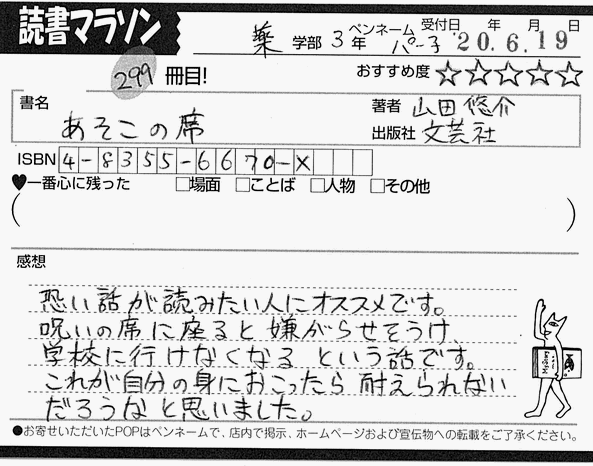 読書マラソン
薬 学部 3年 ペンネーム パー子 受付日 年 月 日 20.6.19
299 冊目!
おすすめ度 ☆☆☆☆☆
書名 あそこの席
著者 山田悠介
出版社 文芸社
ISBN 4-8355-6670-X
♥一番心に残った □場面 □ことば □人物 □その他
( )
感想
恐い話が読みたい人にオススメです。
呪いの席に座ると嫌がらせをうけ
学校に行けなくなるという話です。
これが自分の身におこったら耐えられない
だろうなと思いました。
●お寄せいただいたPOPはペンネームで、店内で掲示、ホームページおよび宣伝物への転載をご了承ください。